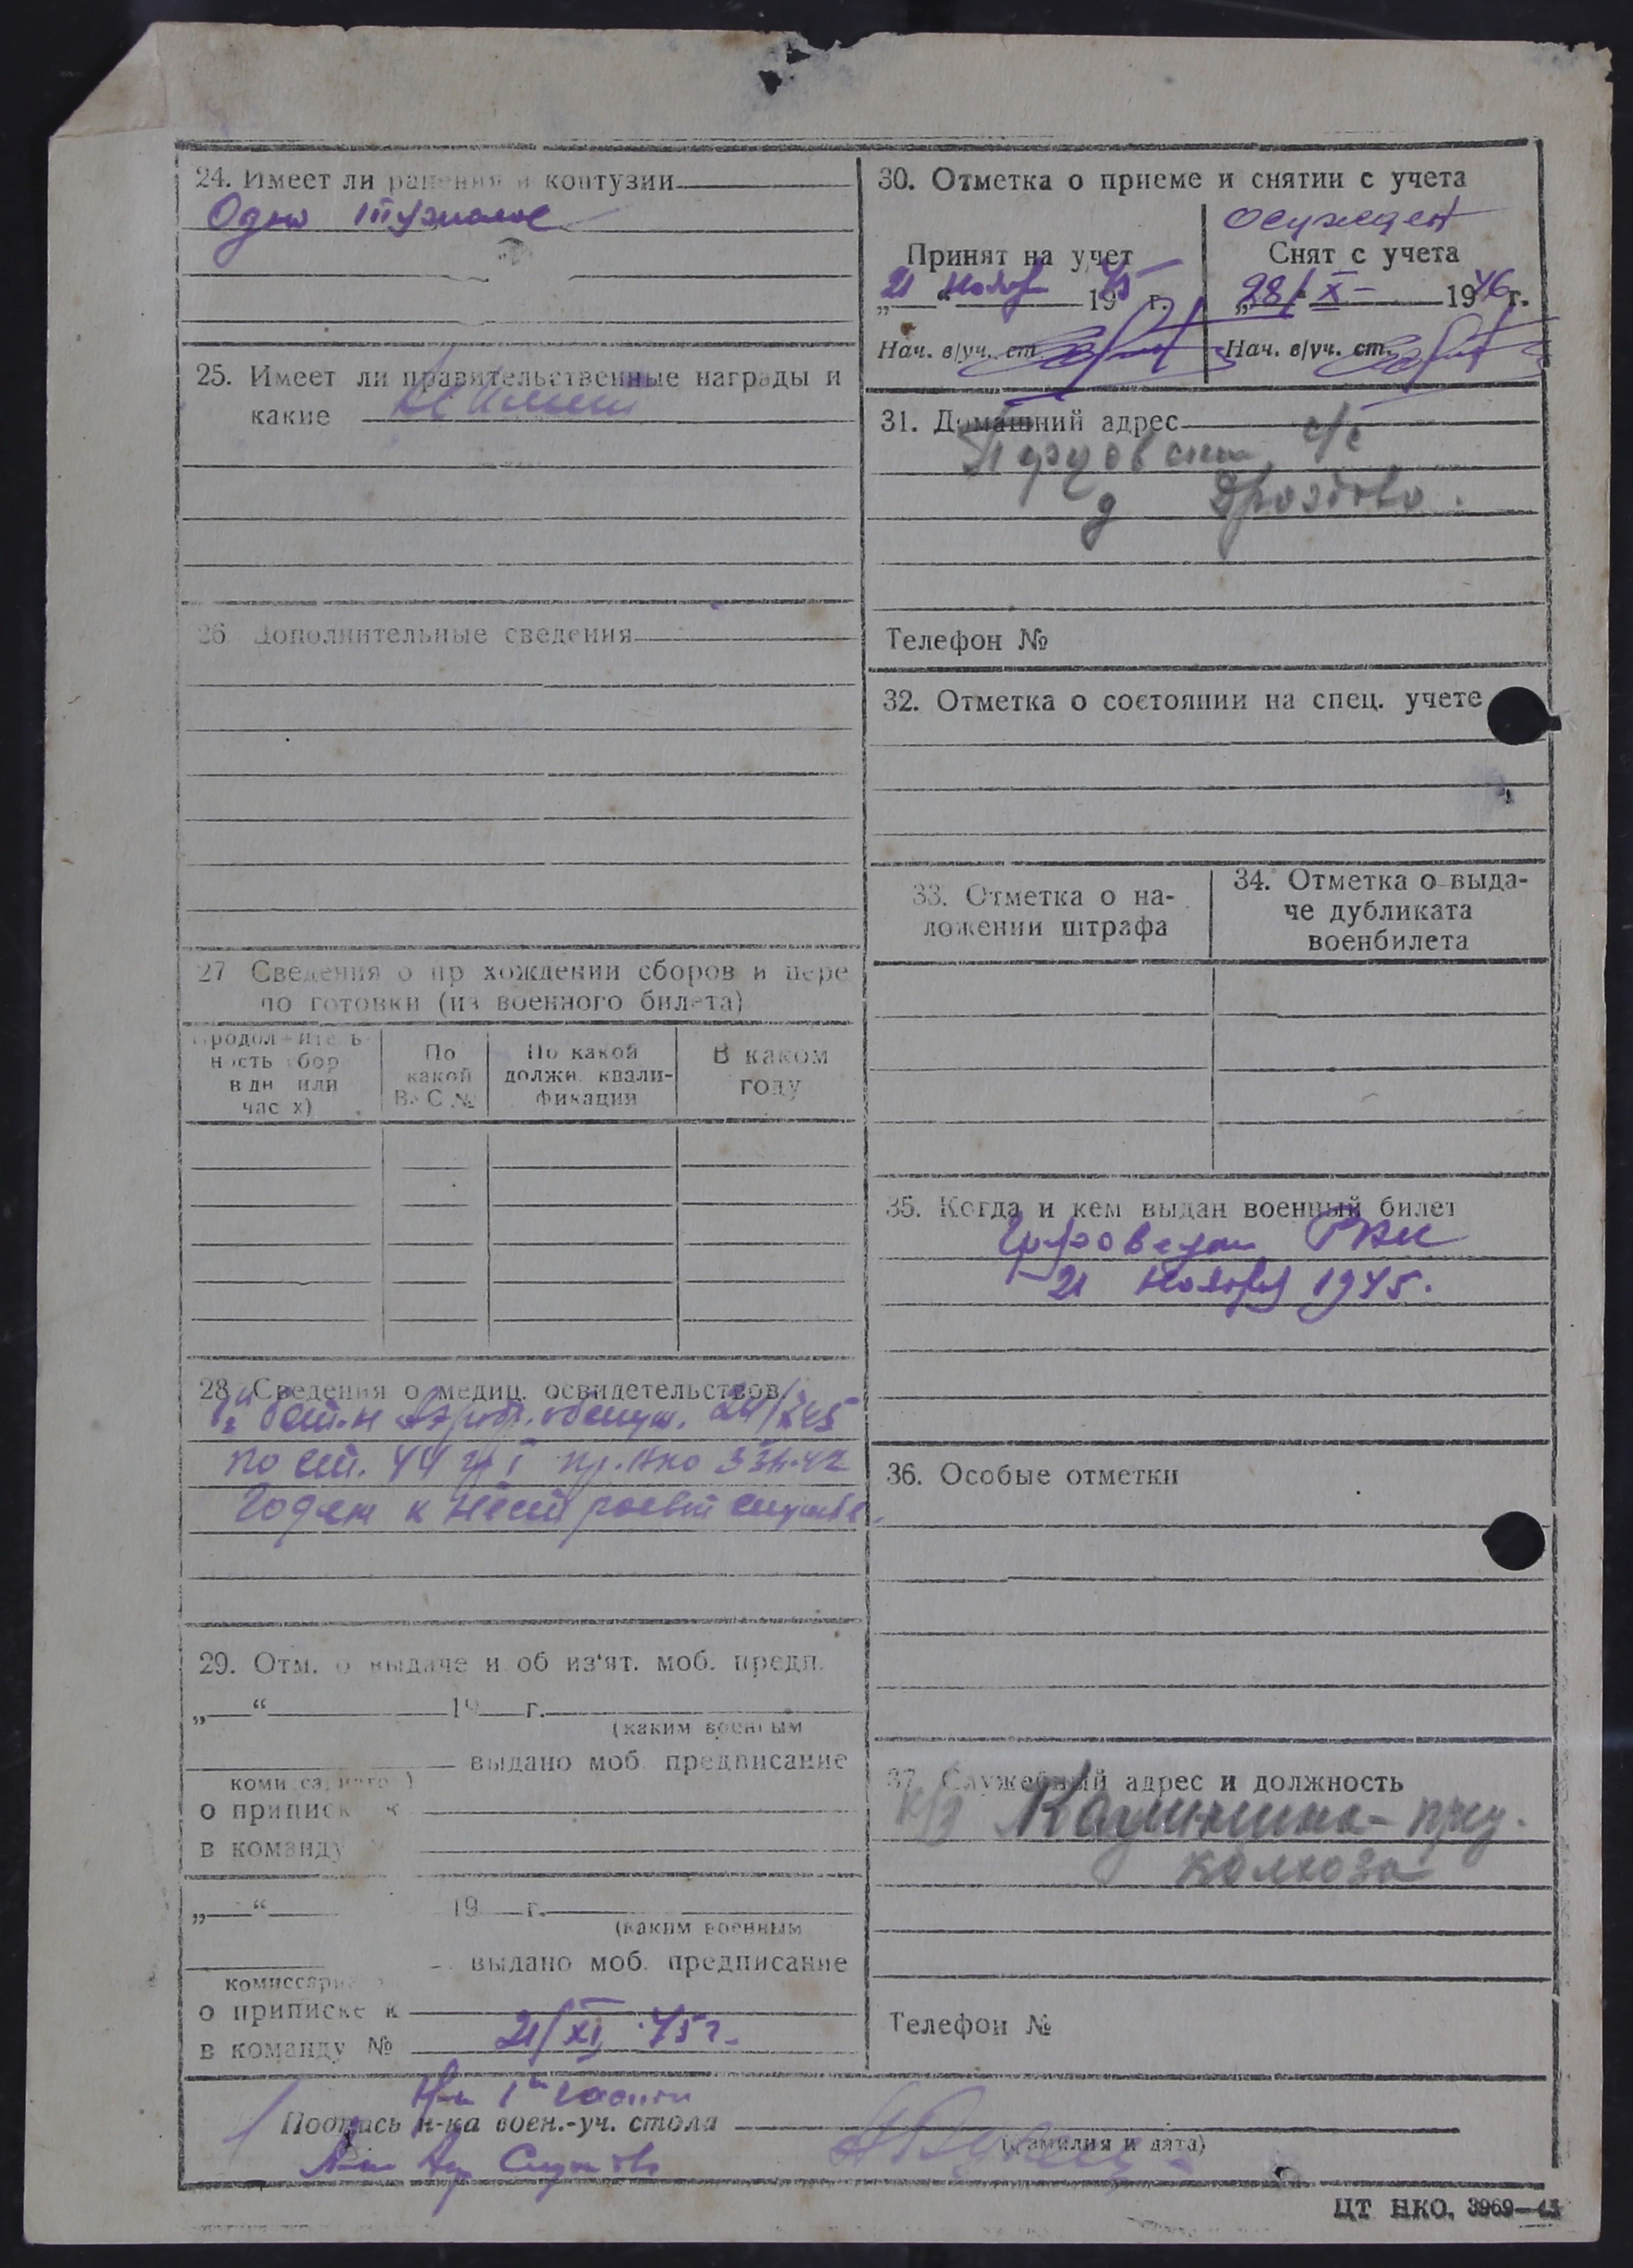 24. Имеет ли ранения и контузии
Одно тяжелое
25. Имеет ли правительственные награды и
какие Не имеет
26. Дополнительные сведения
27 Сведения о пр хождении сборов и пере
по готовки (из военного билета)
Продолжитель
ность сбор
в дн или
час х)
По
какой
ВУС №
По какой
должн. квали-
фикации
В каком
году
28. Сведения о медиц. освидетельствов.
по ст. 44 гр I пр. НКО 336-42
Годен к нестроевой службе.
29. Отм. о выдаче и об из'ят. моб. предп.
„ “ 19 г.
(каким военным
выдано моб. предписание
комиссариатом)
о приписке к
в команду
„ “ 19 г.
(каким военным
выдано моб. предписание
комиссариа
о приписке к
в команду № 21/XI 45 г.
30. Отметка о приеме и снятии с учета
Принят на учет
21 ноября 1945 г.
Нач. в/уч. ст.
осужден
Снят с учета
„28“ X 1946 г.
Нач. в/уч. ст.
31. Домашний адрес
с/с
д Дроздово.
Телефон №
32. Отметка о состоянии на спец. учете
33. Отметка о на-
ложении штрафа
34. Отметка о выда-
че дубликата
военбилета
35. Когда и кем выдан военный билет
РВК
21 ноября 1945.
36. Особые отметки
37. Служебный адрес и должность
к/з Калинина - пред.
колхоза
Телефон №
Н-к 1й части
Подпись н-ка воен.-уч. стола
(фамилия и дата)
ЦТ НКО. 3969—45